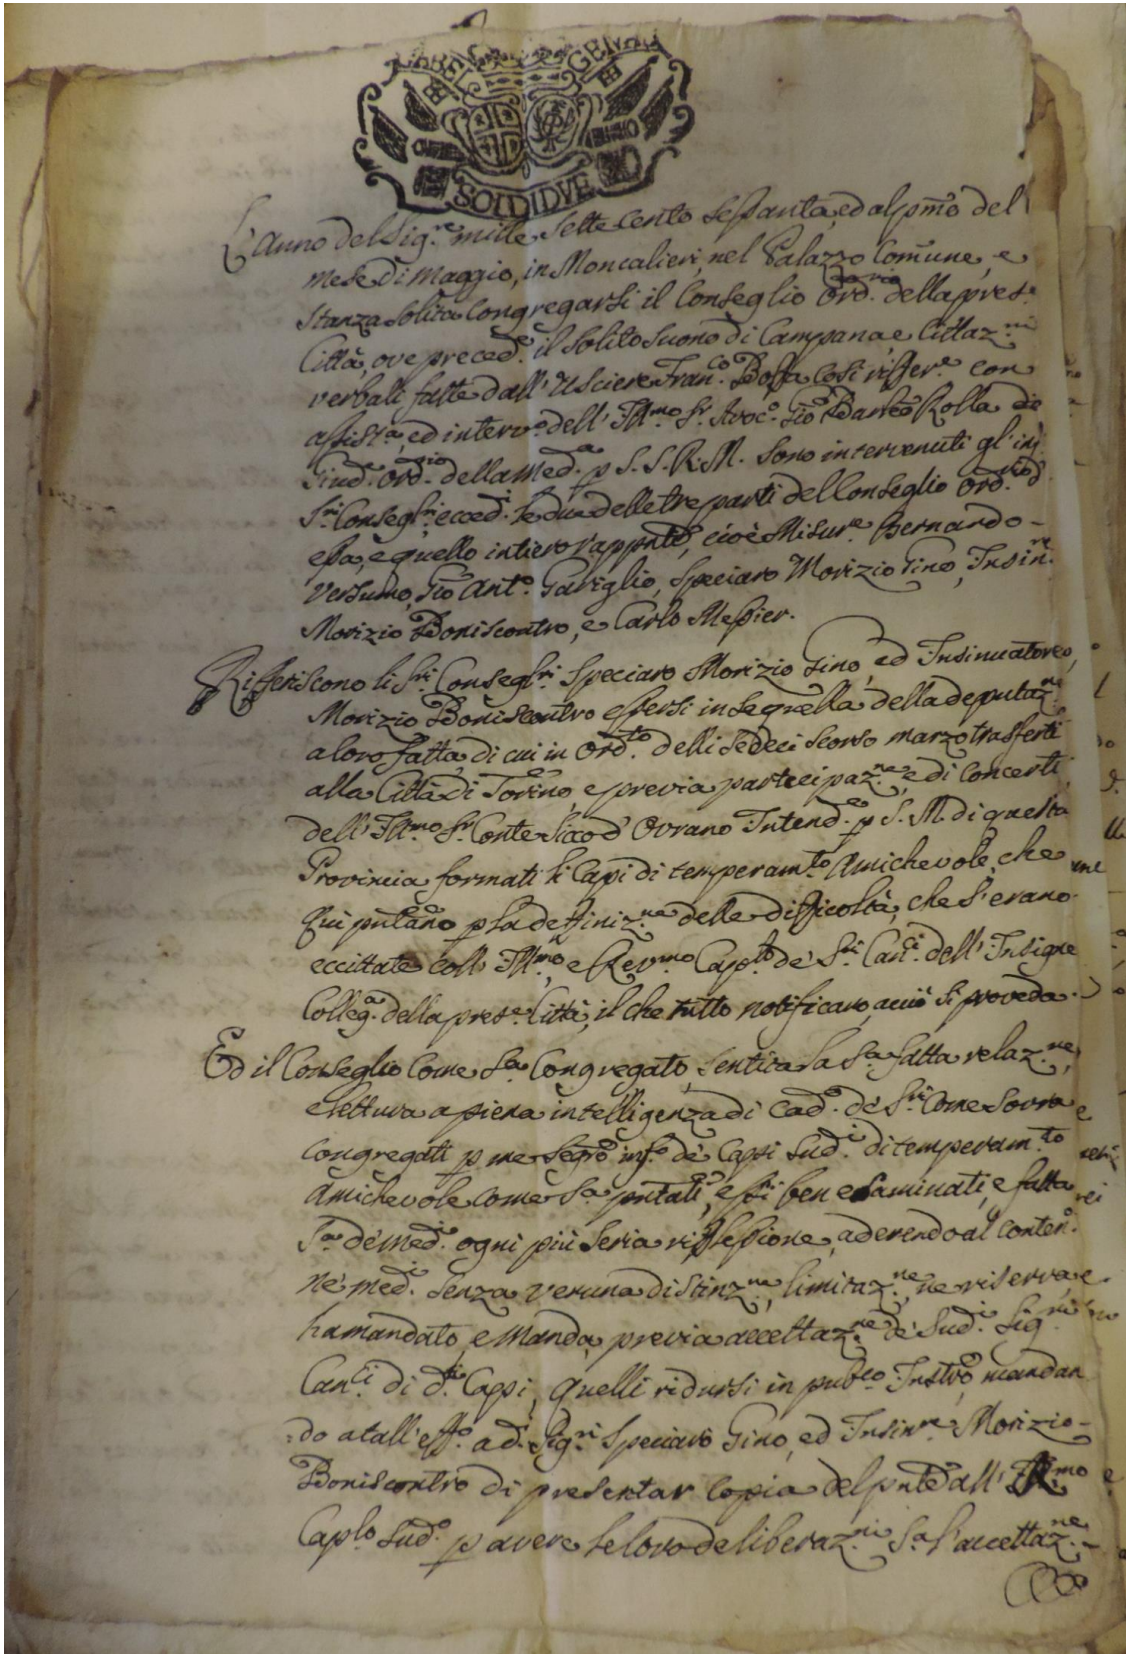 SOLDI DVE
L'Anno del Sig.re mille sette cento sessanta, ed al pmo del
mese di Maggio, in Moncalieri, nel Palazzo Comune, e
stanza solita congregarsi il Conseglio Ord.rio della pres.e
Città, ove preced.e il solito suono di Campana, e Cittaz.ni
verbali fatte dall'Usciere Fran.co Bossa così riffer.e con
assist.a, ed interv.o dell'Ill.mo Sr. Avoc.o Gio Barteo Rolla
Giud.e Ord.rio della med.a p S. S. R. M. sono intervenuti gl'
Sri Consegl.ri ecced.i le due delle tre parti del Conseglio Ord.rio d'
essa, e quello intiero rappnte, cioè Misur.e Bernardo
Versumo, Gio Ant.o Gaviglio, Speciaro Morizio Gino, Insin.re
Morizio Boniscontro, e Carlo Messier.
Rifferiscono li Sri Consegl.ri Speciaro Morizio Gino, ed Insinuatore
Morizio Boniscontro essersi in sequella della deputaz.ne
a loro fatta, di cui in Ord.to delli sedeci scorso marzo trasferti
alla Città di Torino, e previa partecipaz.ne, e di concerti
dell'Ill.mo Sr. Conte Sicco d'Ovrano Intend.e p S. M. di questa
Provincia formati li Capi di temperam.to Amichevole, che
qui pntano p la deffiniz.ne delle difficoltà, che s'erano
eccittate coll'Ill.mo, e Rev.mo Cap.lo de' Sri Can.ci dell'Insigne
Colleg.a della pres.e Città, il che tutto notificano, acciò si proveda.
Ed il Conseglio come Sa. Congregato, sentita la Sa. fatta relaz.ne,
e lettura a piena intelligenza di Cad.o de' Sri Come Sovra
congregati p me Segro inf.o de' Capi sud.i di temperam.to
Amichevole come Sa. pntati, essi ben esaminati, e fatta
Sa. de' med.i ogni più seria riflessione, aderendo al conten.o
ne' med.i senza veruna distinz.ne, limitaz.ne, ne riserva,
ha mandato, e manda, previa accettaz.ne de' sud.i Sig.ri
Can.ci di d.i Capi, quelli ridursi in pub.co Instro, mandan
do a tall'eff.o a d.i Sig.ri Speciaro Gino, ed Insin.re Morizio
Boniscontro di presentar Copia del pnte all'Ill.mo
Caplo Sud.o p avere le loro deliberaz.ni Sa. l'accettaz.ne